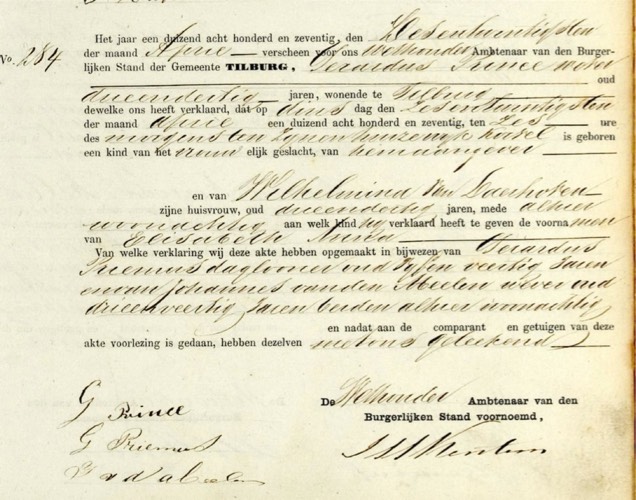 Het jaar een duizend acht honderd en zeventig, den Zesentwintigsten
No. 284 der maand April verscheen voor ons Wethouder Ambtenaar van den Burger-
lijken Stand der Gemeente TILBURG, Gerardus Prince wever
oud
drieendertig jaren, wonende te Tilburg
dewelke ons heeft verklaard, dat op dings dag den Zesentwintigsten
der maand April een duizend acht honderd en zeventig, ten Zes ure
des morgens ten zynen huize is geboren
een kind van het vrouw elijk geslacht, van hem aangever
en van Wilhelmina van
zijne huisvrouw, oud drieendertig jaren, mede alhier
woonachtig aan welk kind hy verklaard heeft te geven de voorna men
van Elisabeth Anna
Van welke verklaring wij deze akte hebben opgemaakt in bijwezen van Gerardus
Priemus daglooner oud vyfen veertig Jaren
en van Johannes van den Abeelen wever oud
drieenveertig Jaren beiden alhier woonachtig
en nadat aan de comparant en getuigen van deze
akte voorlezing is gedaan, hebben dezelven met ons geteekend
De Wethouder Ambtenaar van den
Burgerlijken Stand voornoemd,
G Prince
G Priemus